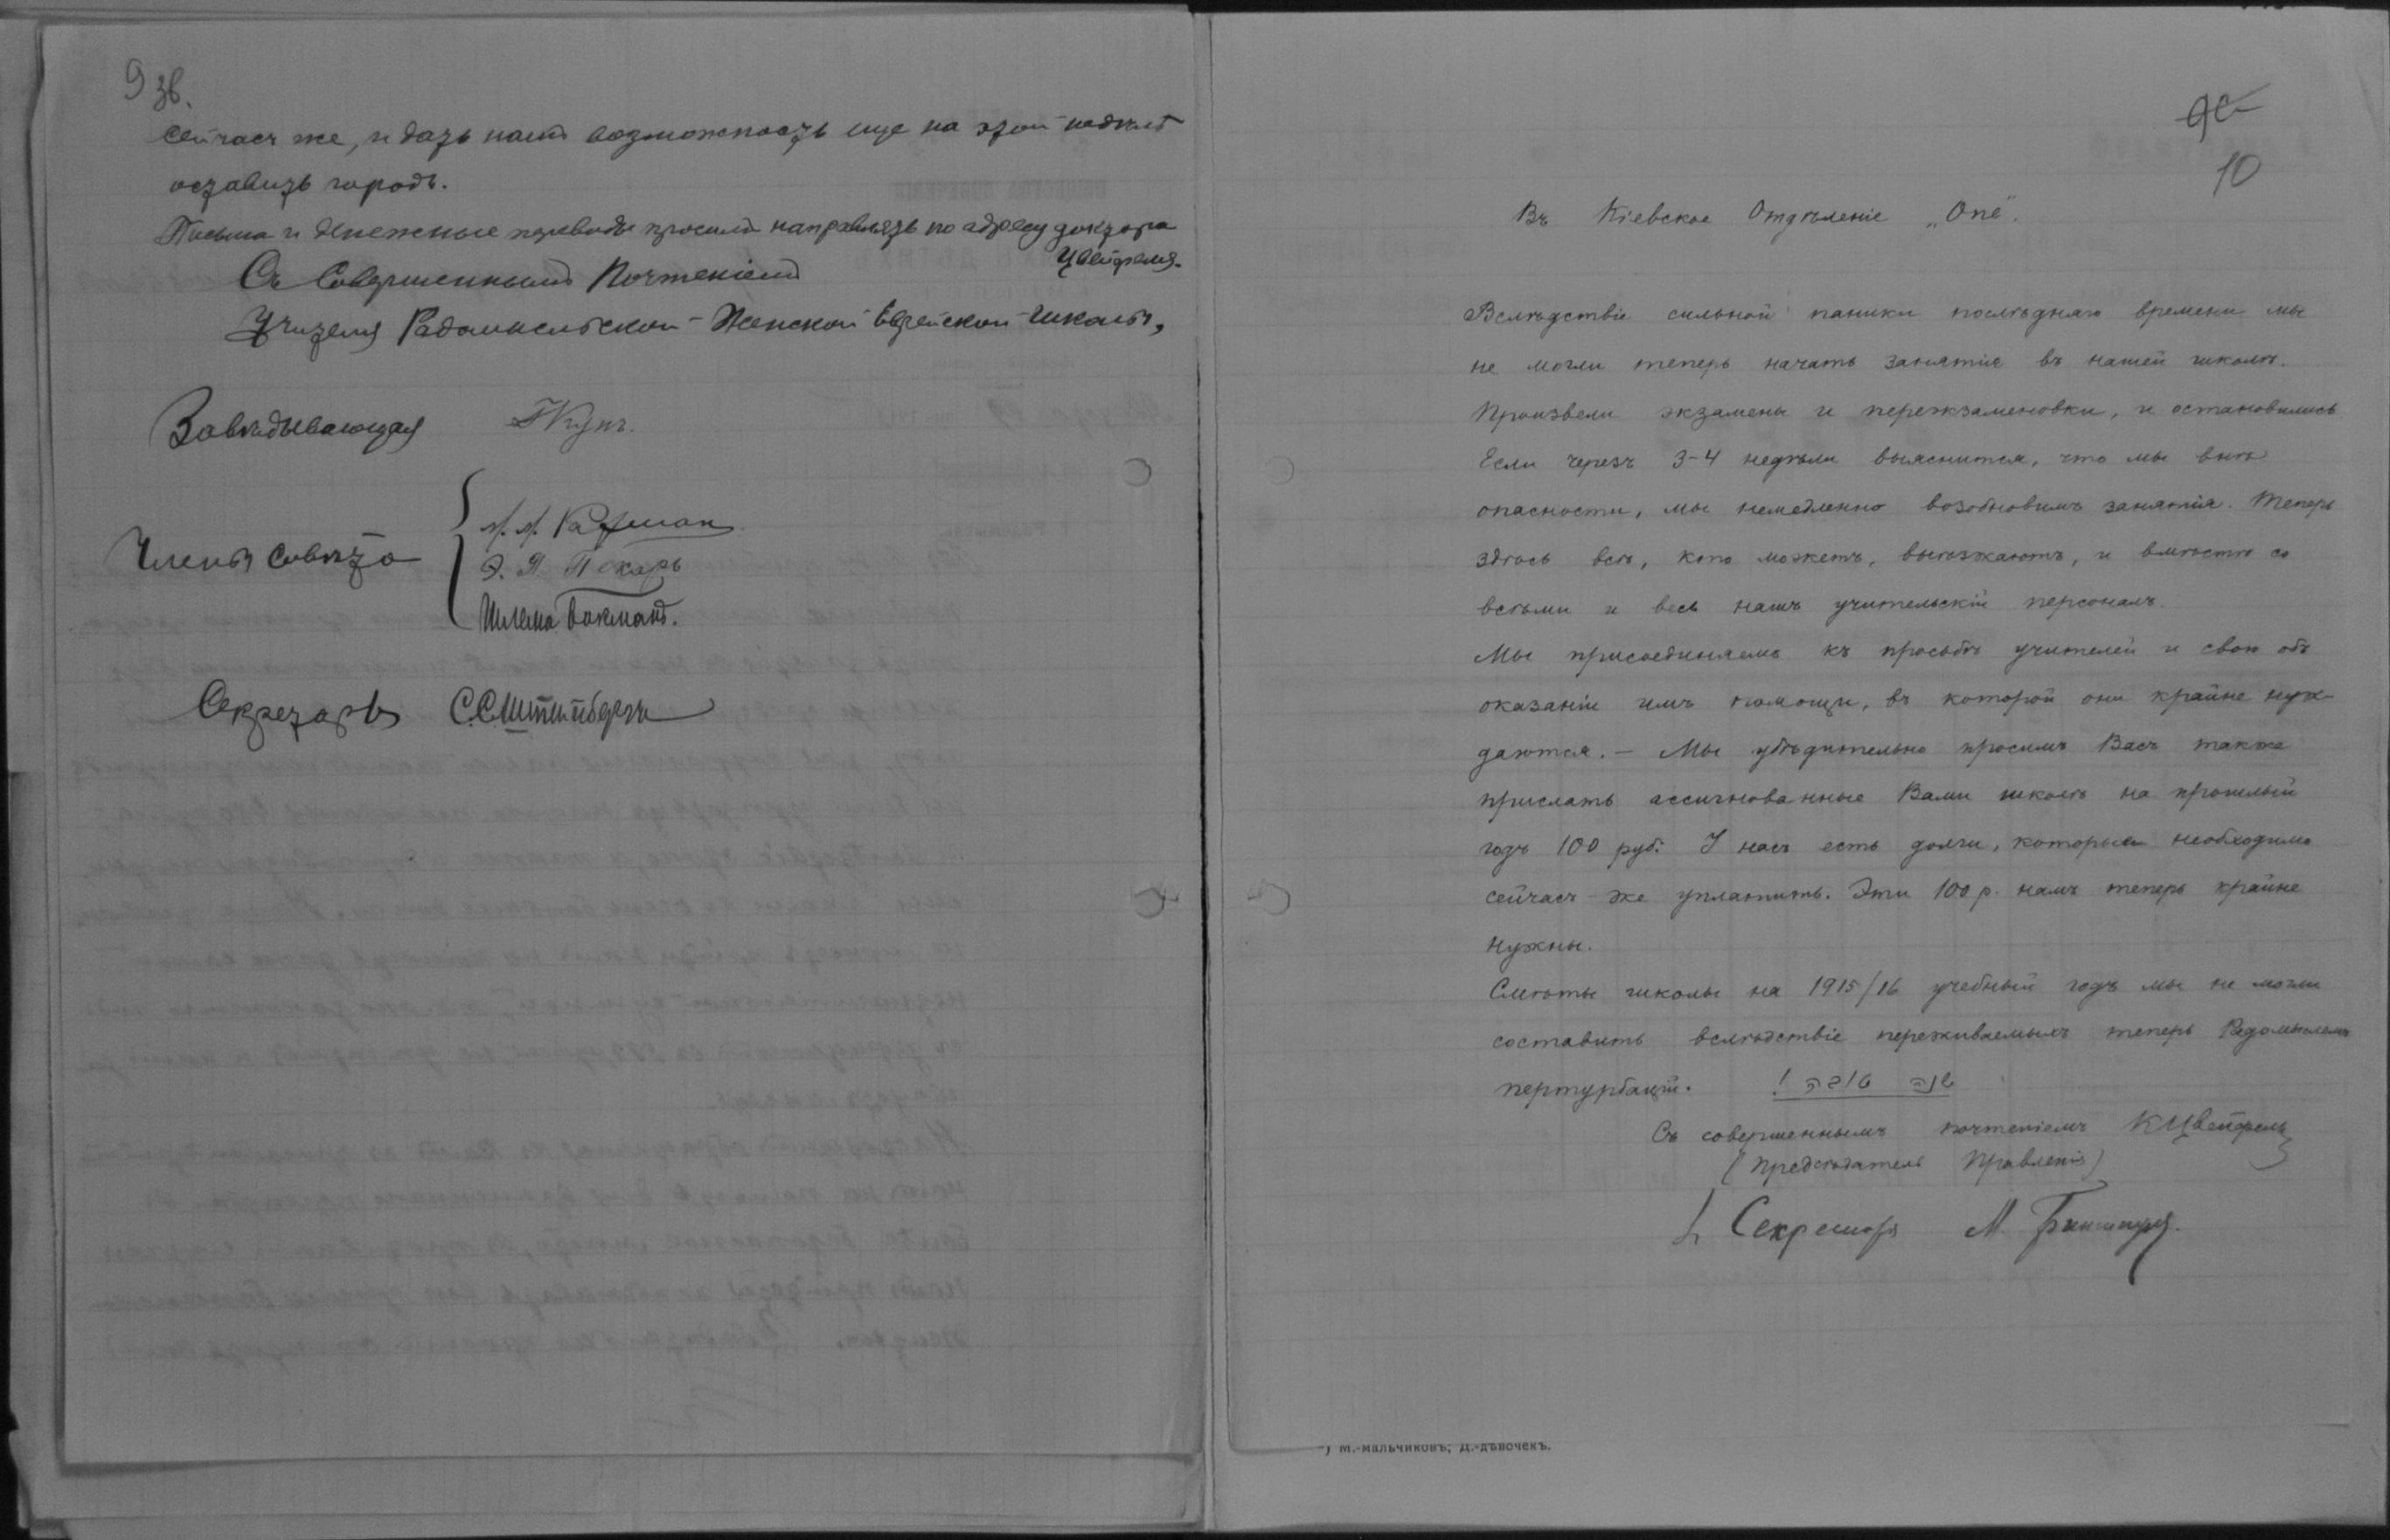 9 зв.
сейчасъ же, и дать намъ возможность еще на этой недѣлѣ
оставить городъ.
Письма и денежные переводы просимъ направлять по адресу доктора
Цвейфеля.
Съ Совершеннымъ Почтеніемъ
Учителя Радомысльской Женской Еврейской Школы,
Завѣдывающая
Члены Совѣта
Э. Я. Пекарь
Секретарь С.С.Штейнбергъ
10
Въ Кіевское Отдѣленіе „Опе".
Вслѣдствіе сильной паники послѣдняго времени мы
не могли теперь начать занятія въ нашей школѣ.
Произвели экзамены и переэкзаменовки, и остановились.
Если черезъ 3-4 недѣли выяснится, что мы внѣ
опасности, мы немедленно возобновимъ занятія. Теперь
здѣсь всѣ, кто можетъ, выѣзжаютъ, и вмѣстѣ со
всѣми и весь нашъ учительскій персоналъ.
Мы присоединяемъ къ просьбѣ учителей и свою объ
оказаніи имъ помощи, въ которой они крайне нуж-
даются. — Мы убѣдительно просимъ Васъ также
прислать ассигнованные Вами школѣ на прошлый
годъ 100 руб. У насъ есть долги, которые необходимо
сейчасъ-же уплатить. Эти 100 р. намъ теперь крайне
нужны.
Смѣты школы на 1915/16 учебный годъ мы не могли
составить вслѣдствіе переживаемыхъ теперь Радомыслемъ
пертурбацій. שנה טובה !
Съ совершеннымъ почтеніемъ КЦвейфель
(Предсѣдатель Правленія)
Секретарь М.
*) М.-мальчиковъ; Д.-дѣвочекъ.